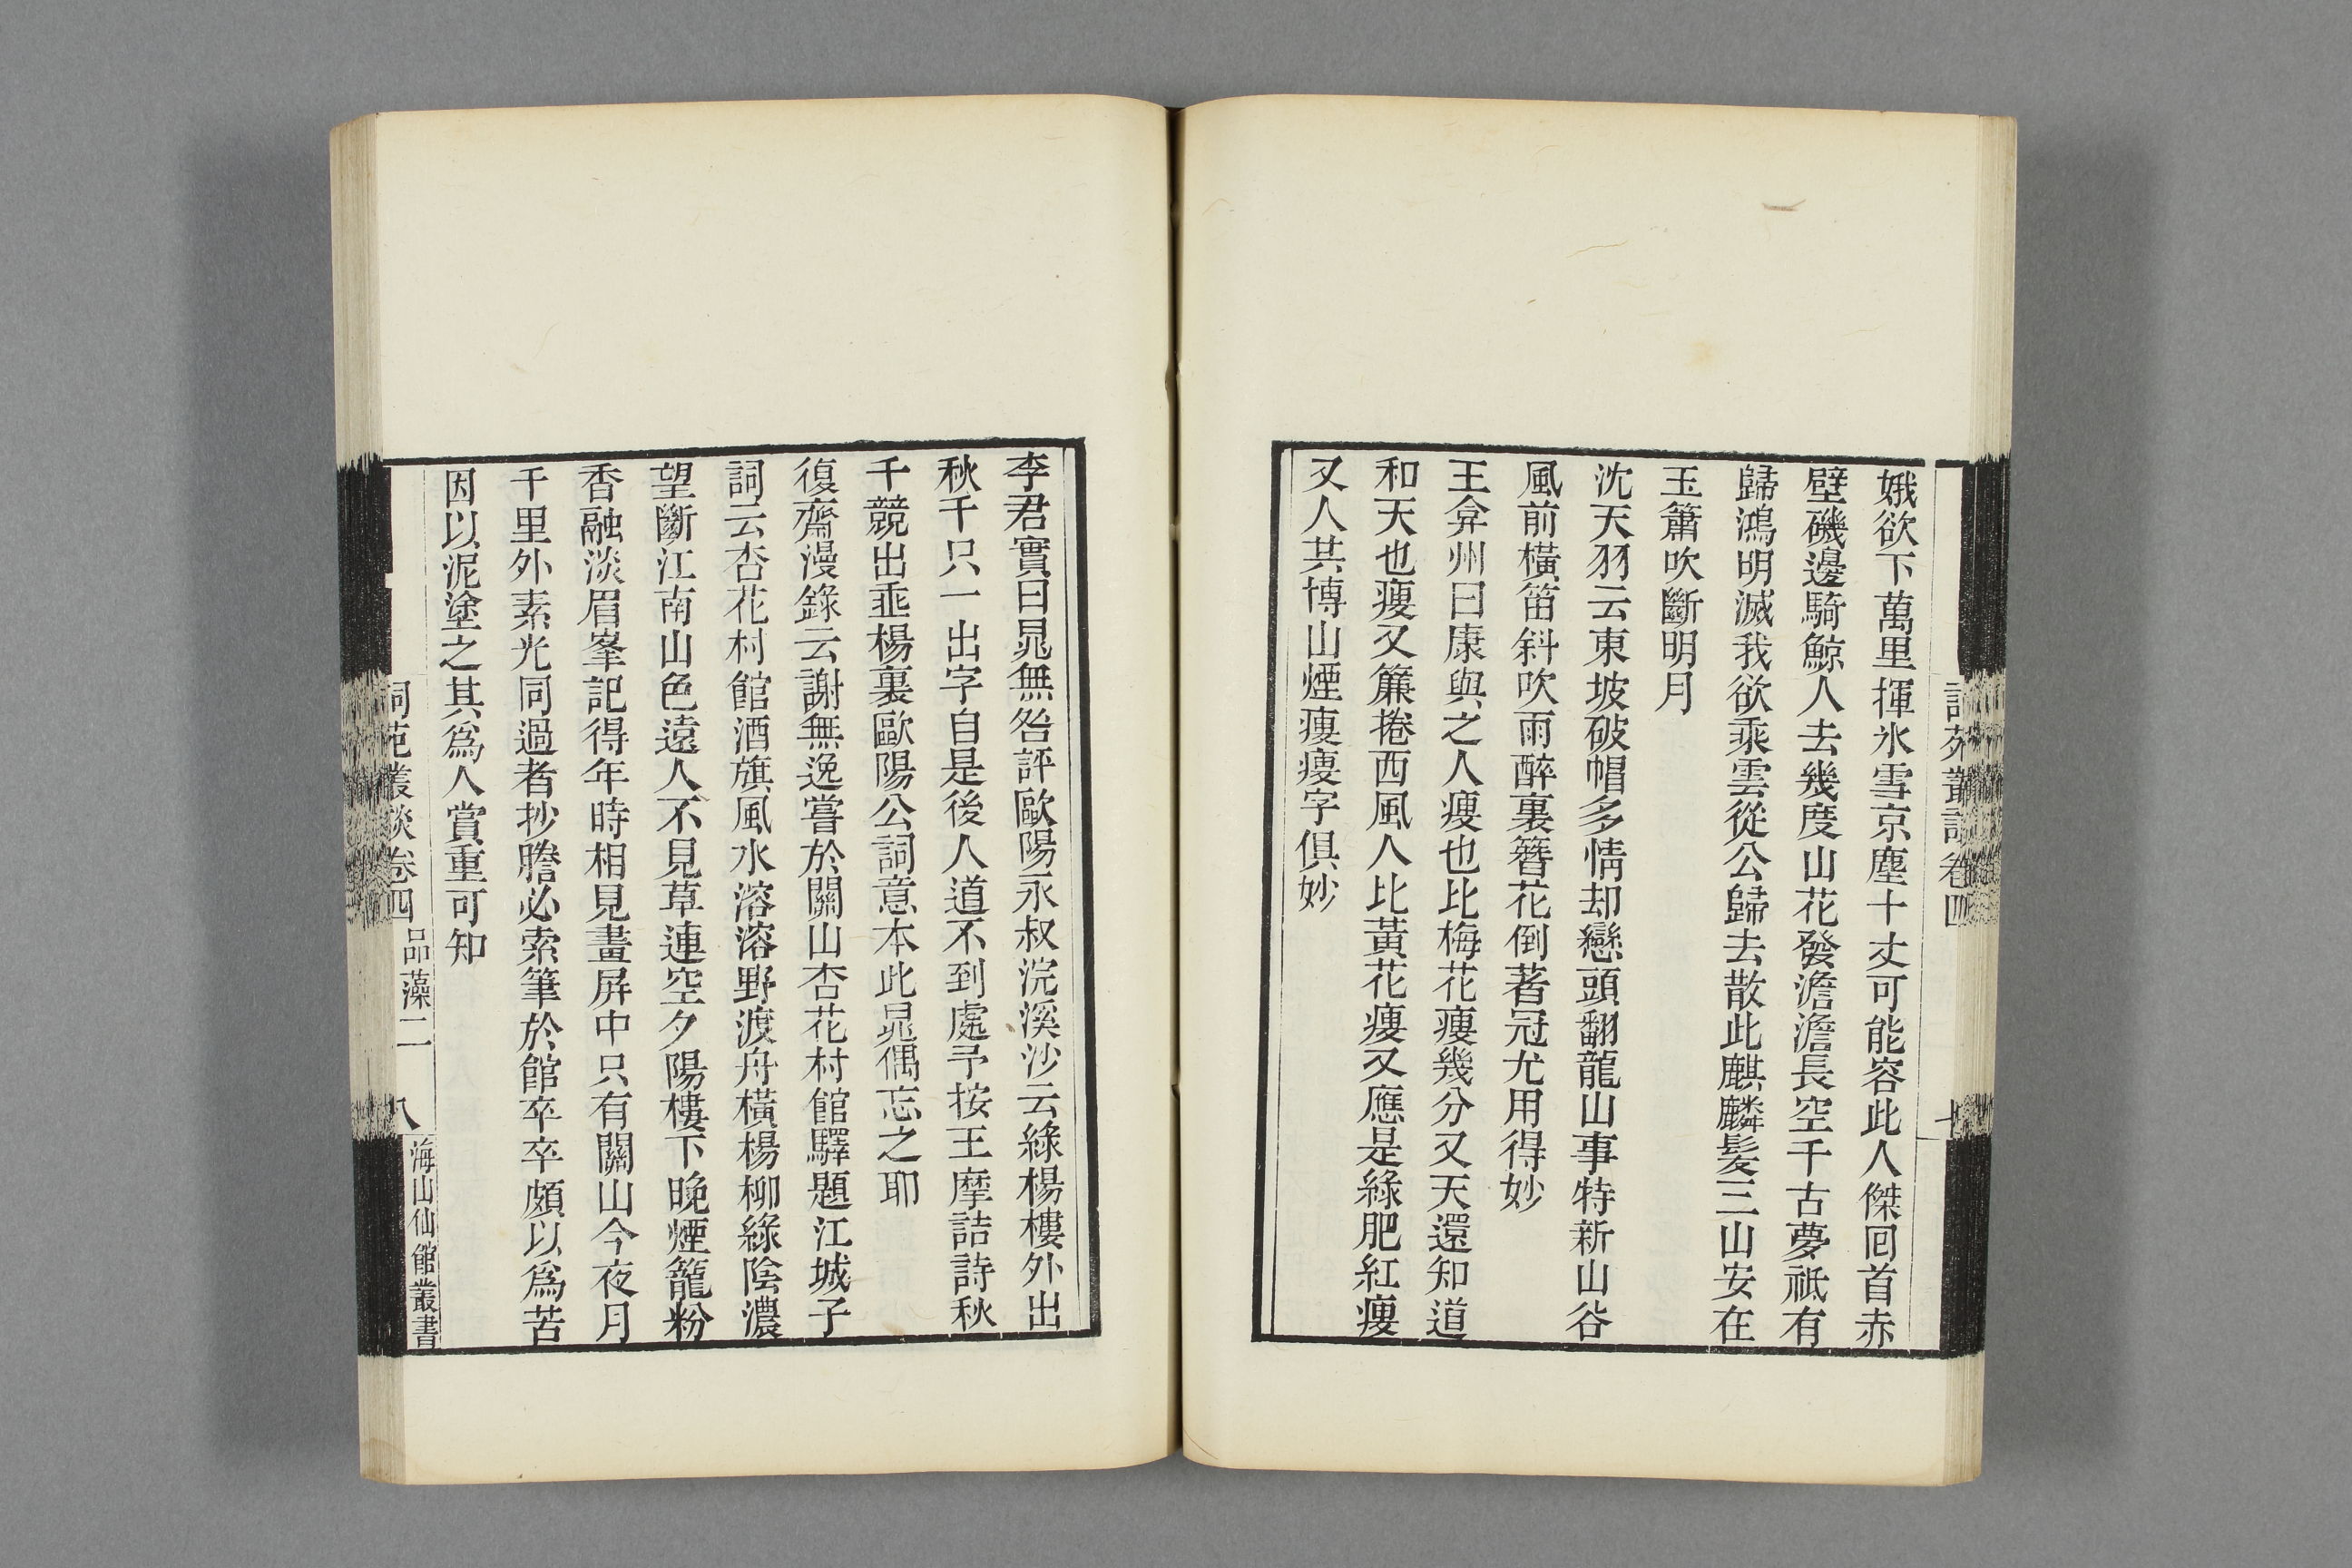 娥欲下萬里揮氷雪京塵十丈可能容此人傑囘首赤
壁磯邊騎鯨人去幾度山花發澹澹長空千古夢祗有
歸鴻明滅我欲乘雲從公歸去散此麒麟髮三山安在
玉簫吹斷明月
沈天羽云東坡破帽多情却戀頭翻龍山事特新山谷
風前橫笛斜吹雨醉裏簪花倒著冠尤用得妙
王弇州曰康與之人瘦也比梅花瘦幾分又天還知道
和天也瘦又簾捲西風人比黃花瘦又應是綠肥紅瘦
又人共博山煙瘦瘦字俱妙
李君實曰晁無咎評歐陽永叔浣溪沙云綠楊樓外出
秋千只一出字自是後人道不到處予按王摩詰詩秋
千競出垂楊裏歐陽公詞意本此晁偶忘之耶
復齋漫錄云謝無逸嘗於關山杏花村館驛題江城子
詞云杏花村館酒旗風水溶溶野渡舟橫楊柳綠陰濃
望斷江南山色遠人不見草連空夕陽樓下晚煙籠粉
香融淡眉峯記得年時相見畫屏中只有關山今夜月
千里外素光同過者抄謄必索筆於館卒卒頗以爲苦
因以泥塗之其爲人賞重可知
詞苑叢談卷四 品藻二 八 海山仙館叢書